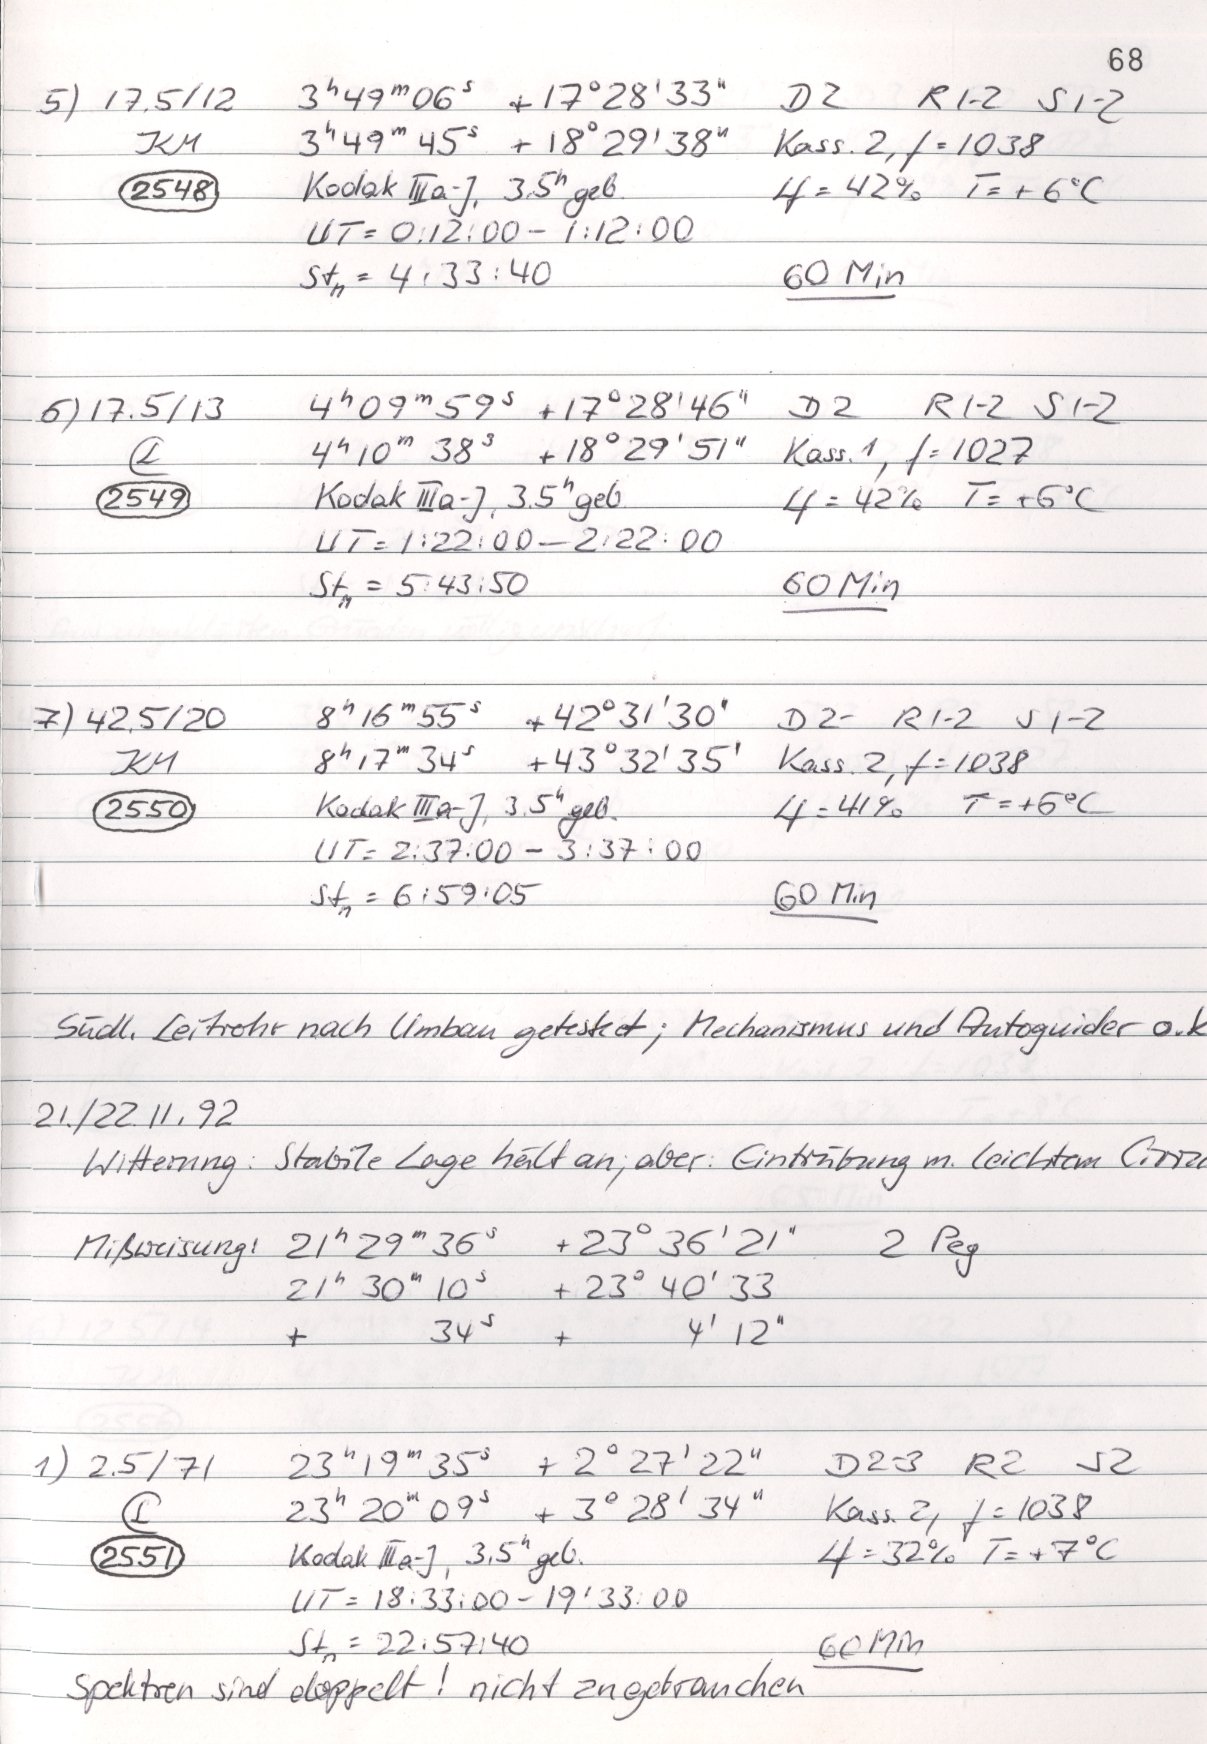 68
5) 17.5/12 3ʰ49ᵐ06ˢ +17°28'33" D2 R1-2 S1-2
KM 3ʰ49ᵐ45ˢ +18°29'38" Kass. 2, f=1038
2548 Kodak IIIa-J, 3.5ʰ geb. = 42% T=+6°C
UT= 0:12:00 - 1:12:00
Stₙ = 4:33:40 60 Min
6) 17.5/13 4ʰ09ᵐ59ˢ +17°28'46" D2 R1-2 S1-2
4ʰ10ᵐ38ˢ +18°29'51" Kass. 1, f=1027
2549 Kodak IIIa-J, 3.5ʰ geb = 42% T=+6°C
UT= 1:22:00 - 2:22:00
Stₙ = 5:43:50 60 Min
7) 42.5/20 8ʰ16ᵐ55ˢ +42°31'30" D2- R1-2 S1-2
KM 8ʰ17ᵐ34ˢ +43°32'35' Kass. 2, f=1038
2550 Kodak IIIa-J, 3.5ʰ geb. = 41% T=+6°C
UT= 2:37:00 - 3:37:00
Stₙ = 6:59:05 60 Min
Südl. Leitrohr nach Umbau getestet; Mechanismus und Autoguider o.k
21./22.11.92
Witterung: Stabile Lage hält an; aber: Eintrübung m. leichtem Cirru
Mißweisung: 21ʰ29ᵐ36ˢ +23°36'21" 2 Peg
21ʰ30ᵐ10ˢ +23°40'33
+ 34ˢ + 4'12"
1) 2.5/71 23ʰ19ᵐ35ˢ +2°27'22" D2-3 R2 S2
23ʰ20ᵐ09ˢ +3°28'34" Kass. 2, f=1038
2551 Kodak IIIa-J, 3.5ʰ geb. = 32% T=+7°C
UT= 18:33:00 - 19:33:00
Stₙ = 22:57:40 60 Min
Spektren sind doppelt! nicht zu gebrauchen